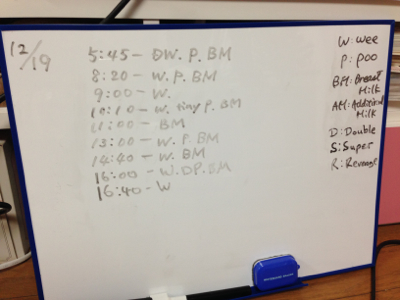 12/19
5:45 - DW. P. BM
8:20 - W. P. BM
9:00 - W.
10:10 - W. tiny P. BM
11:00 - BM
13:00 - W. P. BM
14:40 - W. BM
16:00 - W. DP. BM
16:40 - W
W: wee
P: poo
BM: Breast
Milk
AM: Additional
Milk
D: Double
S: Super
R: Revenge